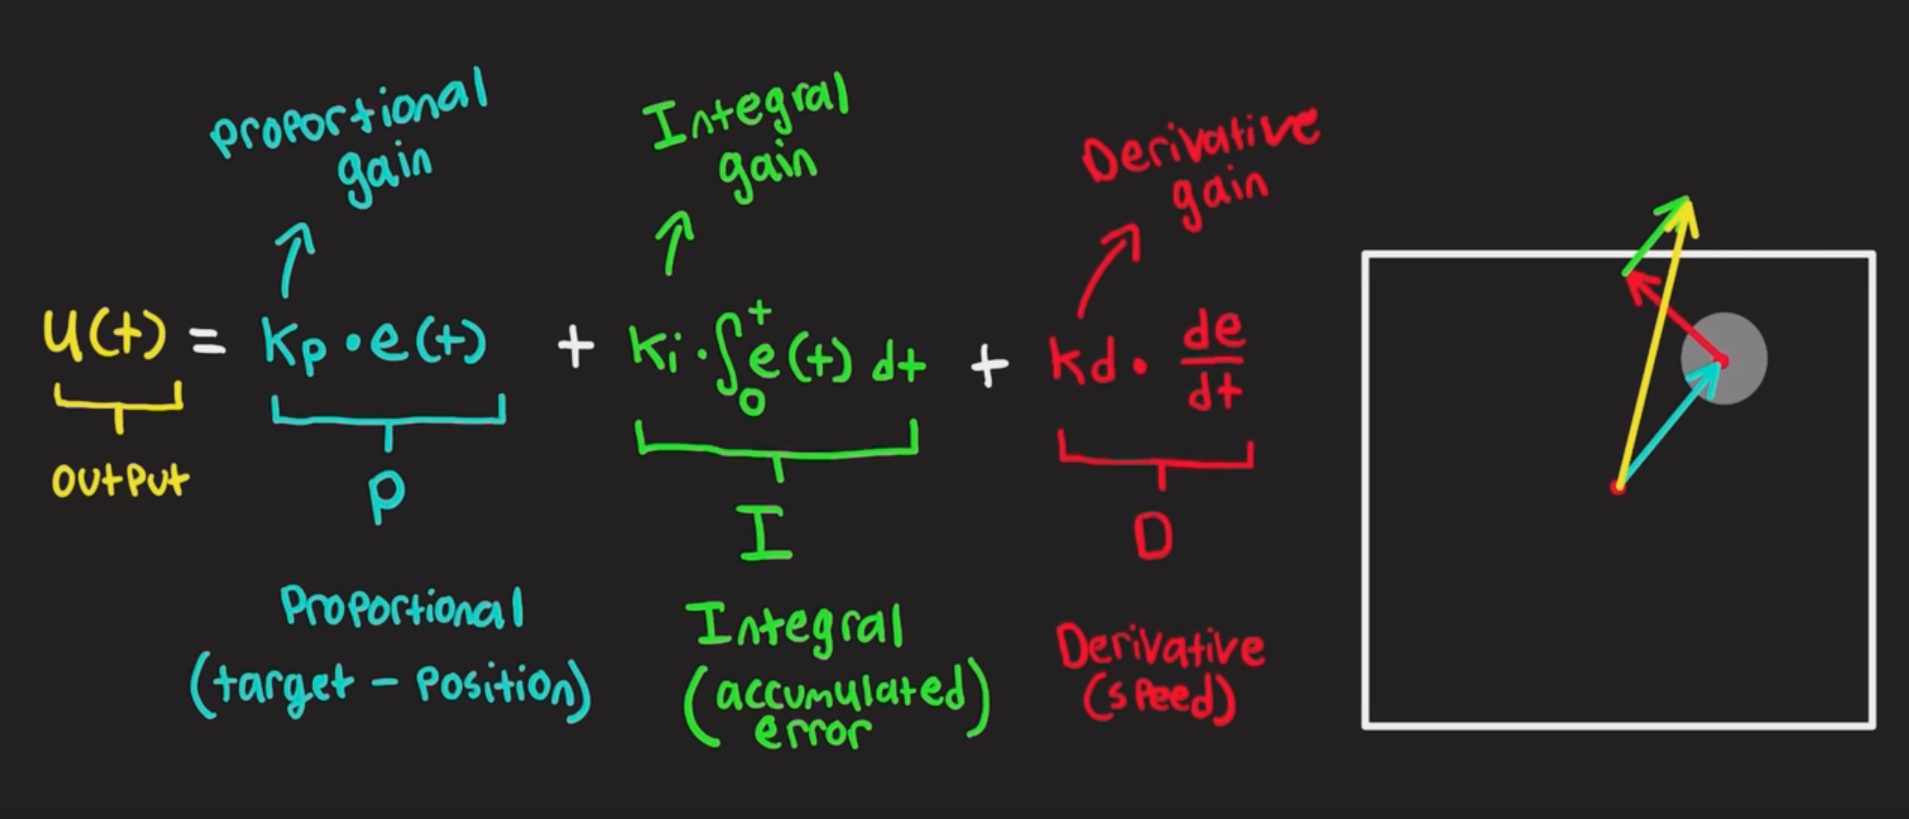 proportional
gain
Integral
gain
Derivative
gain
u(t) = kp · e(t) + ki · ∫₀ᵗ e(t) dt + kd · de/dt
output
P
I
D
Proportional
(target - position)
Integral
(accumulated
error)
Derivative
(speed)